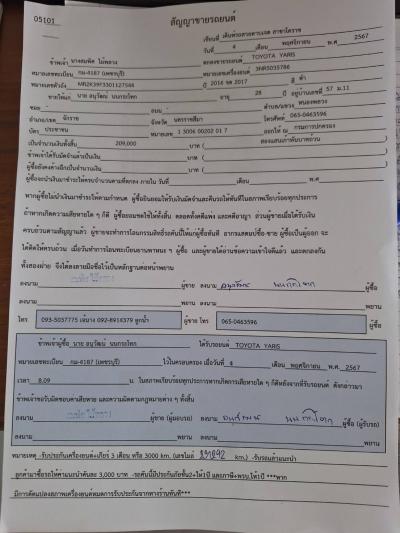 05101
สัญญาขายรถยนต์
เขียนที่ เต็นท์รถ สาขาโคราช
วันที่ 4 เดือน พฤศจิกายน พ.ศ. 2567
ข้าพเจ้า นางสมพิศ ไม้พลวง ตกลงขายรถยนต์ TOYOTA YARIS
หมายเลขทะเบียน กม-4187 (เพชรบุรี) หมายเลขเครื่องยนต์ 3NR5035786
หมายเลขตัวถัง MR2K39F3301127544 ปี 2016 จด 2017 สี ดำ
ขายให้แก่ นาย อนุวัฒน์ นนกระโทก อายุ 28 ปี อยู่บ้านเลขที่ 57 ม.11
ซอย - ถนน - ตำบล/แขวง หนองพลวง
อำเภอ/เขต จักราช จังหวัด นครราชสีมา โทรศัพท์ 065-0463596
บัตร ประชาชน หมายเลข 1 3006 00202 01 7 ออกให้ ณ กรมการปกครอง
เป็นจำนวนเงินทั้งสิ้น 209,000 บาท ( สองแสนเก้าพันบาทถ้วน
ข้าพเจ้าได้รับมัดจำแล้วเป็นเงิน บาท (
ผู้ซื้อยังคงค้างอีกเป็นจำนวนเงิน บาท (
ผู้ซื้อจะนำเงินมาชำระให้ครบจำนวนตามที่ตกลง ภายใน วันที่ เดือน พ.ศ.
หากผู้ซื้อไม่นำเงินมาชำระให้ตามกำหนด ผู้ซื้อยินยอมให้ริบเงินมัดจำและคืนรถให้ทันทีในสภาพเรียบร้อยทุกประการ
ถ้าหากเกิดความเสียหายใด ๆ ก็ดี ผู้ซื้อยอมชดใช้ให้ทั้งสิ้น ตลอดทั้งคดีแพ่ง และคดีอาญา ส่วนผู้ขายเมื่อได้รับเงิน
ครบถ้วนตามสัญญาแล้ว ผู้ขายจะทำการโอนกรรมสิทธิ์รถคันนี้ให้แก่ผู้ซื้อทันที อากรแสตมป์ซื้อ-ขาย ผู้ซื้อเป็นผู้ออก จะ
ได้คิดให้ครบถ้วน เมื่อวันทำการโอนทะเบียนยานพาหนะ ฯ ผู้ซื้อ และผู้ขายได้อ่านข้อความเข้าใจดีแล้ว และตกลงกัน
ทั้งสองฝ่าย จึงได้ลงลายมือชื่อไว้เป็นหลักฐานต่อหน้าพยาน
ลงนาม ผู้ขาย ลงนาม อนุวัฒน์ นนกระโทก ผู้ซื้อ
ลงนาม พยาน ลงนาม พยาน
โทร 093-5037775 092-8914379 ผู้ขาย โทร 065-0463596 ผู้ซื้อ
ข้าพเจ้าผู้ซื้อ นาย อนุวัฒน์ นนกระโทก ได้รับรถยนต์ TOYOTA YARIS
หมายเลขทะเบียน กม-4187 (เพชรบุรี) ไว้ในครอบครอง เมื่อวันที่ 4 เดือน พฤศจิกายน พ.ศ. 2567
เวลา 8.09 น. ในสภาพเรียบร้อยทุกประการหากเกิดการเสียหายใด ๆ ก็ดีหลังจากที่รับรถยนต์ ดังกล่าวมา
ข้าพเจ้าขอรับผิดชอบค่าเสียหาย และความผิดตามกฎหมายต่าง ๆ ทั้งสิ้น
ลงนาม ผู้ขาย (ผู้มอบรถ) ลงนาม อนุวัฒน์ นนกระโทก ผู้ซื้อ (ผู้รับรถ)
ลงนาม พยาน ลงนาม พยาน
หมายเหตุ -รับประกันเครื่องยนต์+เกียร์ 3 เดือน หรือ 3000 km. (เลขไมล์ km.) -รับรถแล้วแนะนำ
ลูกค้ามาซื้อรถให้ค่าแนะนำคันละ 3,000 บาท -รถคันนี้มีประกันภัยชั้น2+ให้1ปี และภาษี+พรบ.ให้1ปี ***หาก
มีการดัดแปลงสภาพเครื่องยนต์หมดการรับประกันจากทางร้านทันที***